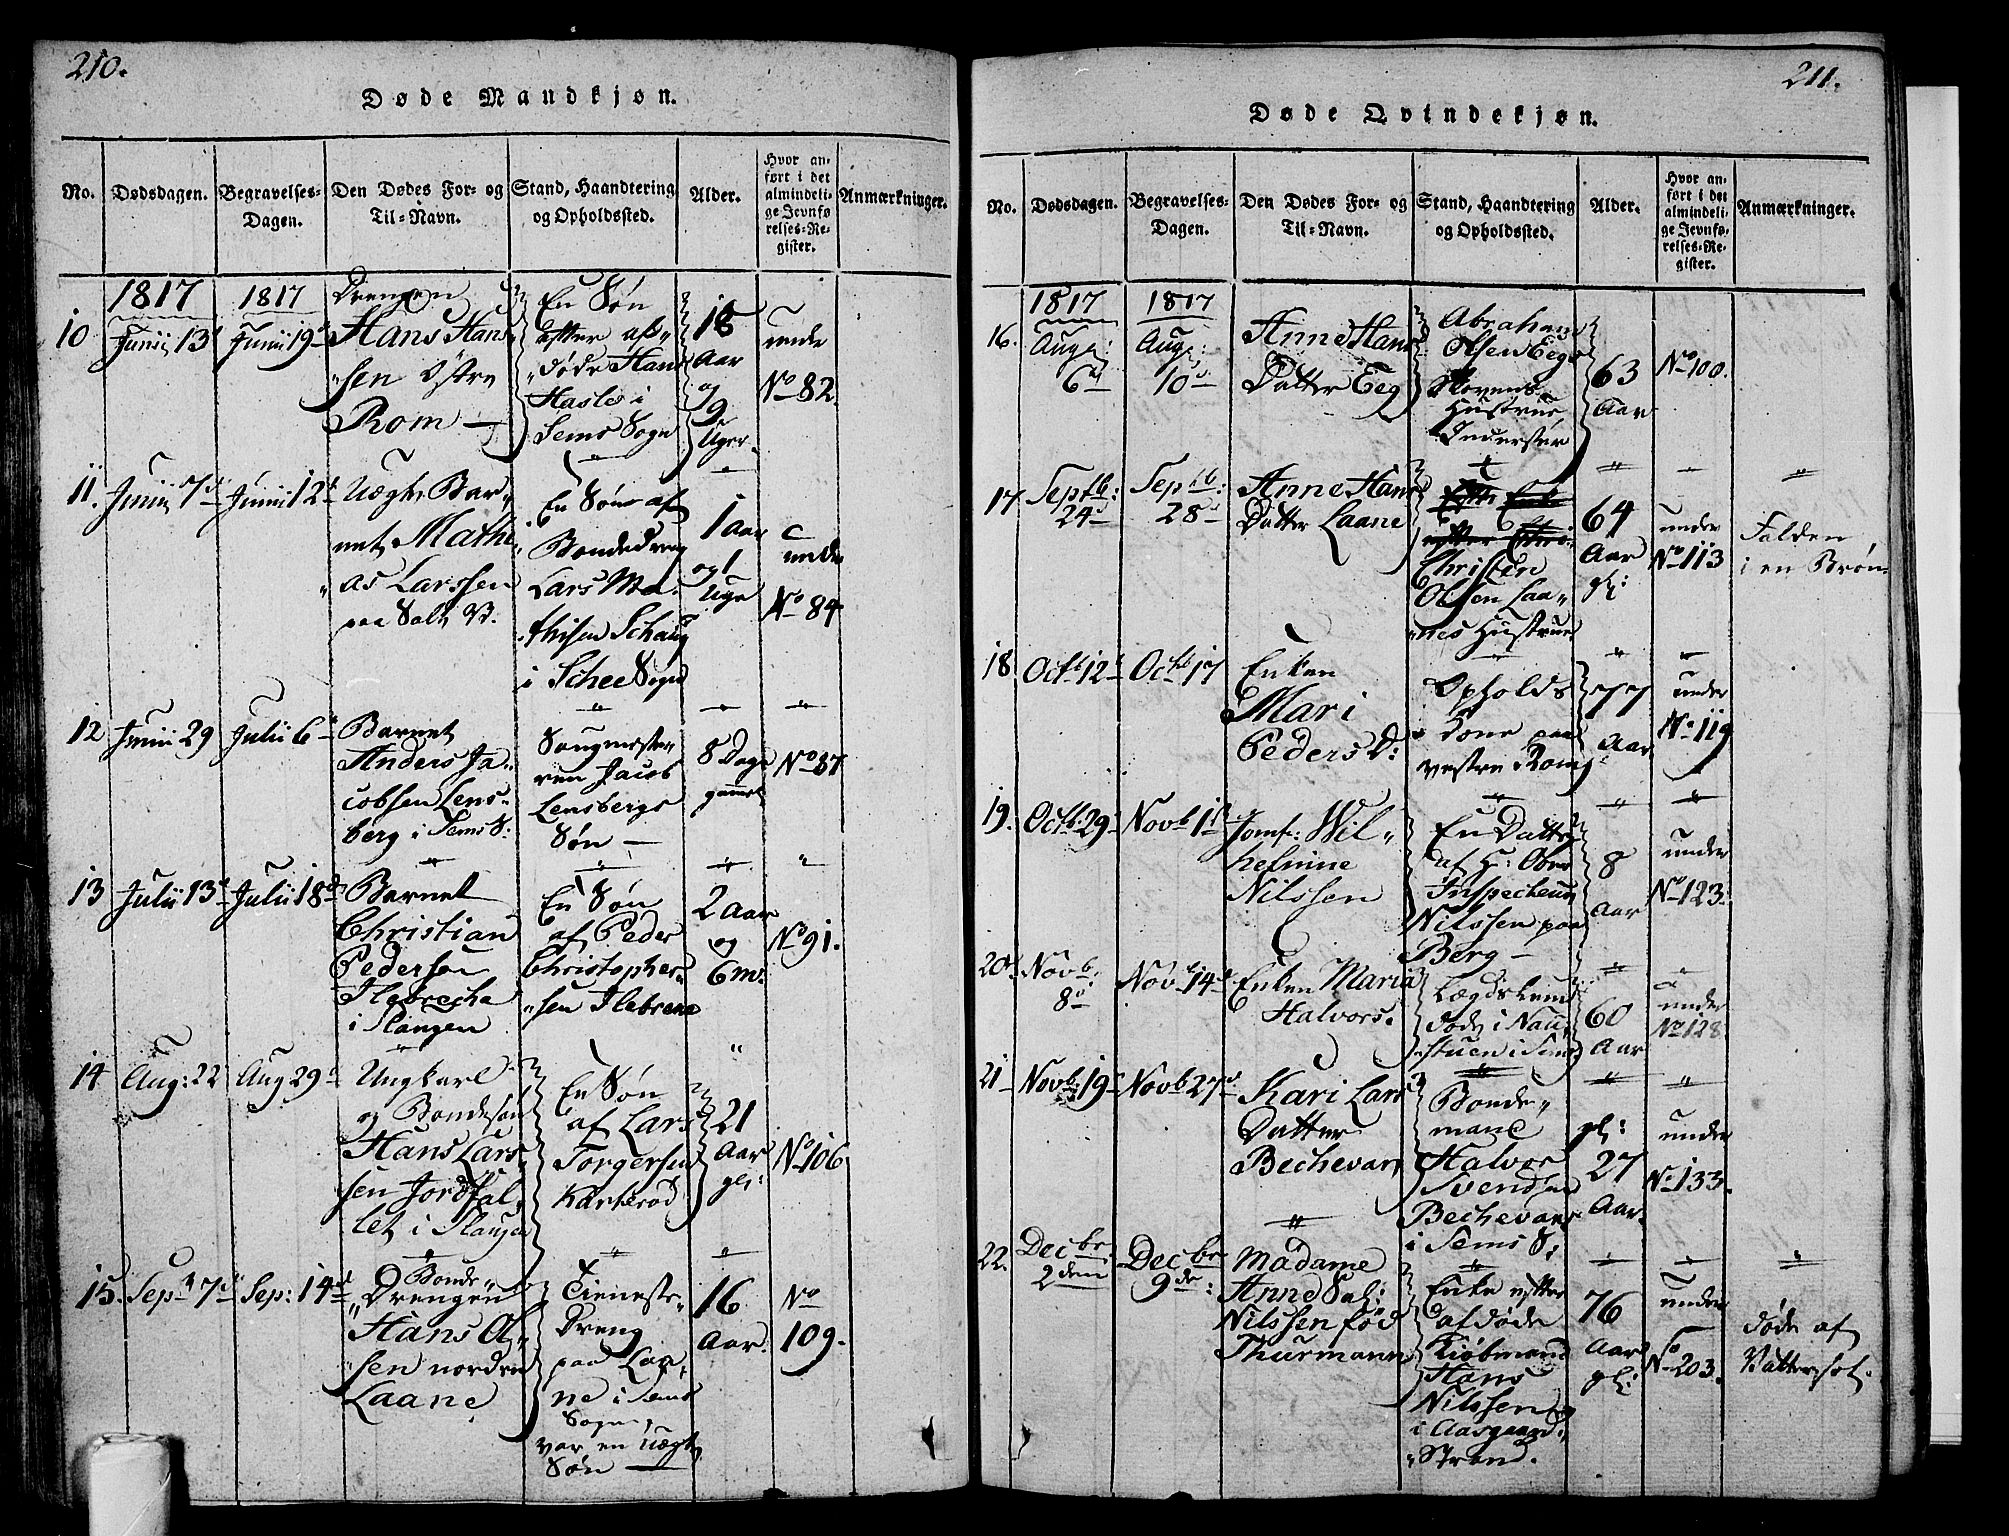 210.
Døde Mandkjøn.
No. Dødsdagen. Begravelses-Dagen. Den Dødes For- og Til-Navn. Stand, Haandtering og Opholdssted. Alder. Hvor anført i det almindelige Jevnførelses-Register. Anmærkninger.
1817 1817
10 Junii 13d Junii 19d
Drengen
Hans Hans
sen Østre
Rom —
En Søn
efter af
døde Hans
Hasle i
Sems Sogn
18
Aar
og
9
Uger.
under
No 82.
11. Junii 7d Junii 12d
Uægte Bar
net Mathi
as Larssen
paa Solv V.
En Søn af
Bondedreng
Lars Ma
thisen Schaug
i Schee Sogn
1 aar
og 1
Uge
under
No 84
12 Junii 29 Julii 6d
Barnet
Anders Ja
cobsen Lens
berg i Sems S:
ren Jacob
Lensbergs
Søn —
8 Dage
gammel
No 87
13 Julii 13d Julii 18d
Barnet
Christian
Pedersen
Ilebreche
i Slangen
En Søn
af Peder
Christopher
sen Ilebrene
2 Aar
og
6 m.
No 91.
14 Aug: 22 Aug 29d
Ungkarl
og Bondesøn
Hans Lars
sen Jordfal
let i Slangen
En Søn
af Lars
Torgersen
Karterød
21
Aar
gl:
No 106
15. Sept 7d Sep: 14d
Bonde
Drengen
Hans Ol
sen nordre
Laane
Tieneste
Dreng
paa Laa
ne i Sems
Sogn,
var en uægte
Søn —
16
Aar.
No
109.
211.
Døde Qvindekjøn.
No. Dødsdagen. Begravelses-Dagen. Den Dødes For- og Til-Navn. Stand, Haandtering og Opholdssted. Alder. Hvor anført i det almindelige Jevnførelses-Register. Anmærkninger.
1817 1817
16. Aug: 6d Aug: 10d
Anne Hans
Datter Eeg
Abraham
Olsen Eeg
Skovens
Hustrue
Inderster
63
Aar
No 100.
17 Septb: 24d Septb: 28d
Anne Hans
Datter Laane
Christen
Olsen Laa
nes Hustrue
64
Aar
gl:
under
No 113
Falden
i en Brøn
18 Octb 12d Octb 17
Enken
Mari
Peders D:
Opholds
Kone paa
vestre Rom
77
Aar
under
No 119
19. Octb: 29 Novb 1ste
Jomf: Wil
helmine
Nilssen
En Datter
af H: Ober
Inspecteur
Nilssen paa
Berg —
8
Aar
under
No 123.
20. Novb: 8d Novb 14d
Enken Maria
Halvors.
Lægdslem
døde i Nau
stuen i Sems
60
Aar
under
No 128
21 Novb: 19d Novb 27d
Kari Lars
Datter
Bechevar
Bonde
mand
Halvor
Svendsen
Bechevars
i Sems S:
gl:
27
Aar.
under
No 133.
22. Decbr: 2den Decbr 9de:
Madame
Anne Sal:
Nilssen fød
Thurmann
Enke efter
afdøde
Kiøbmand
Hans
Nilssen
i Aasgaard
Strand.
76
Aar
gl:
under
No 203.
døde af
Vattersot.